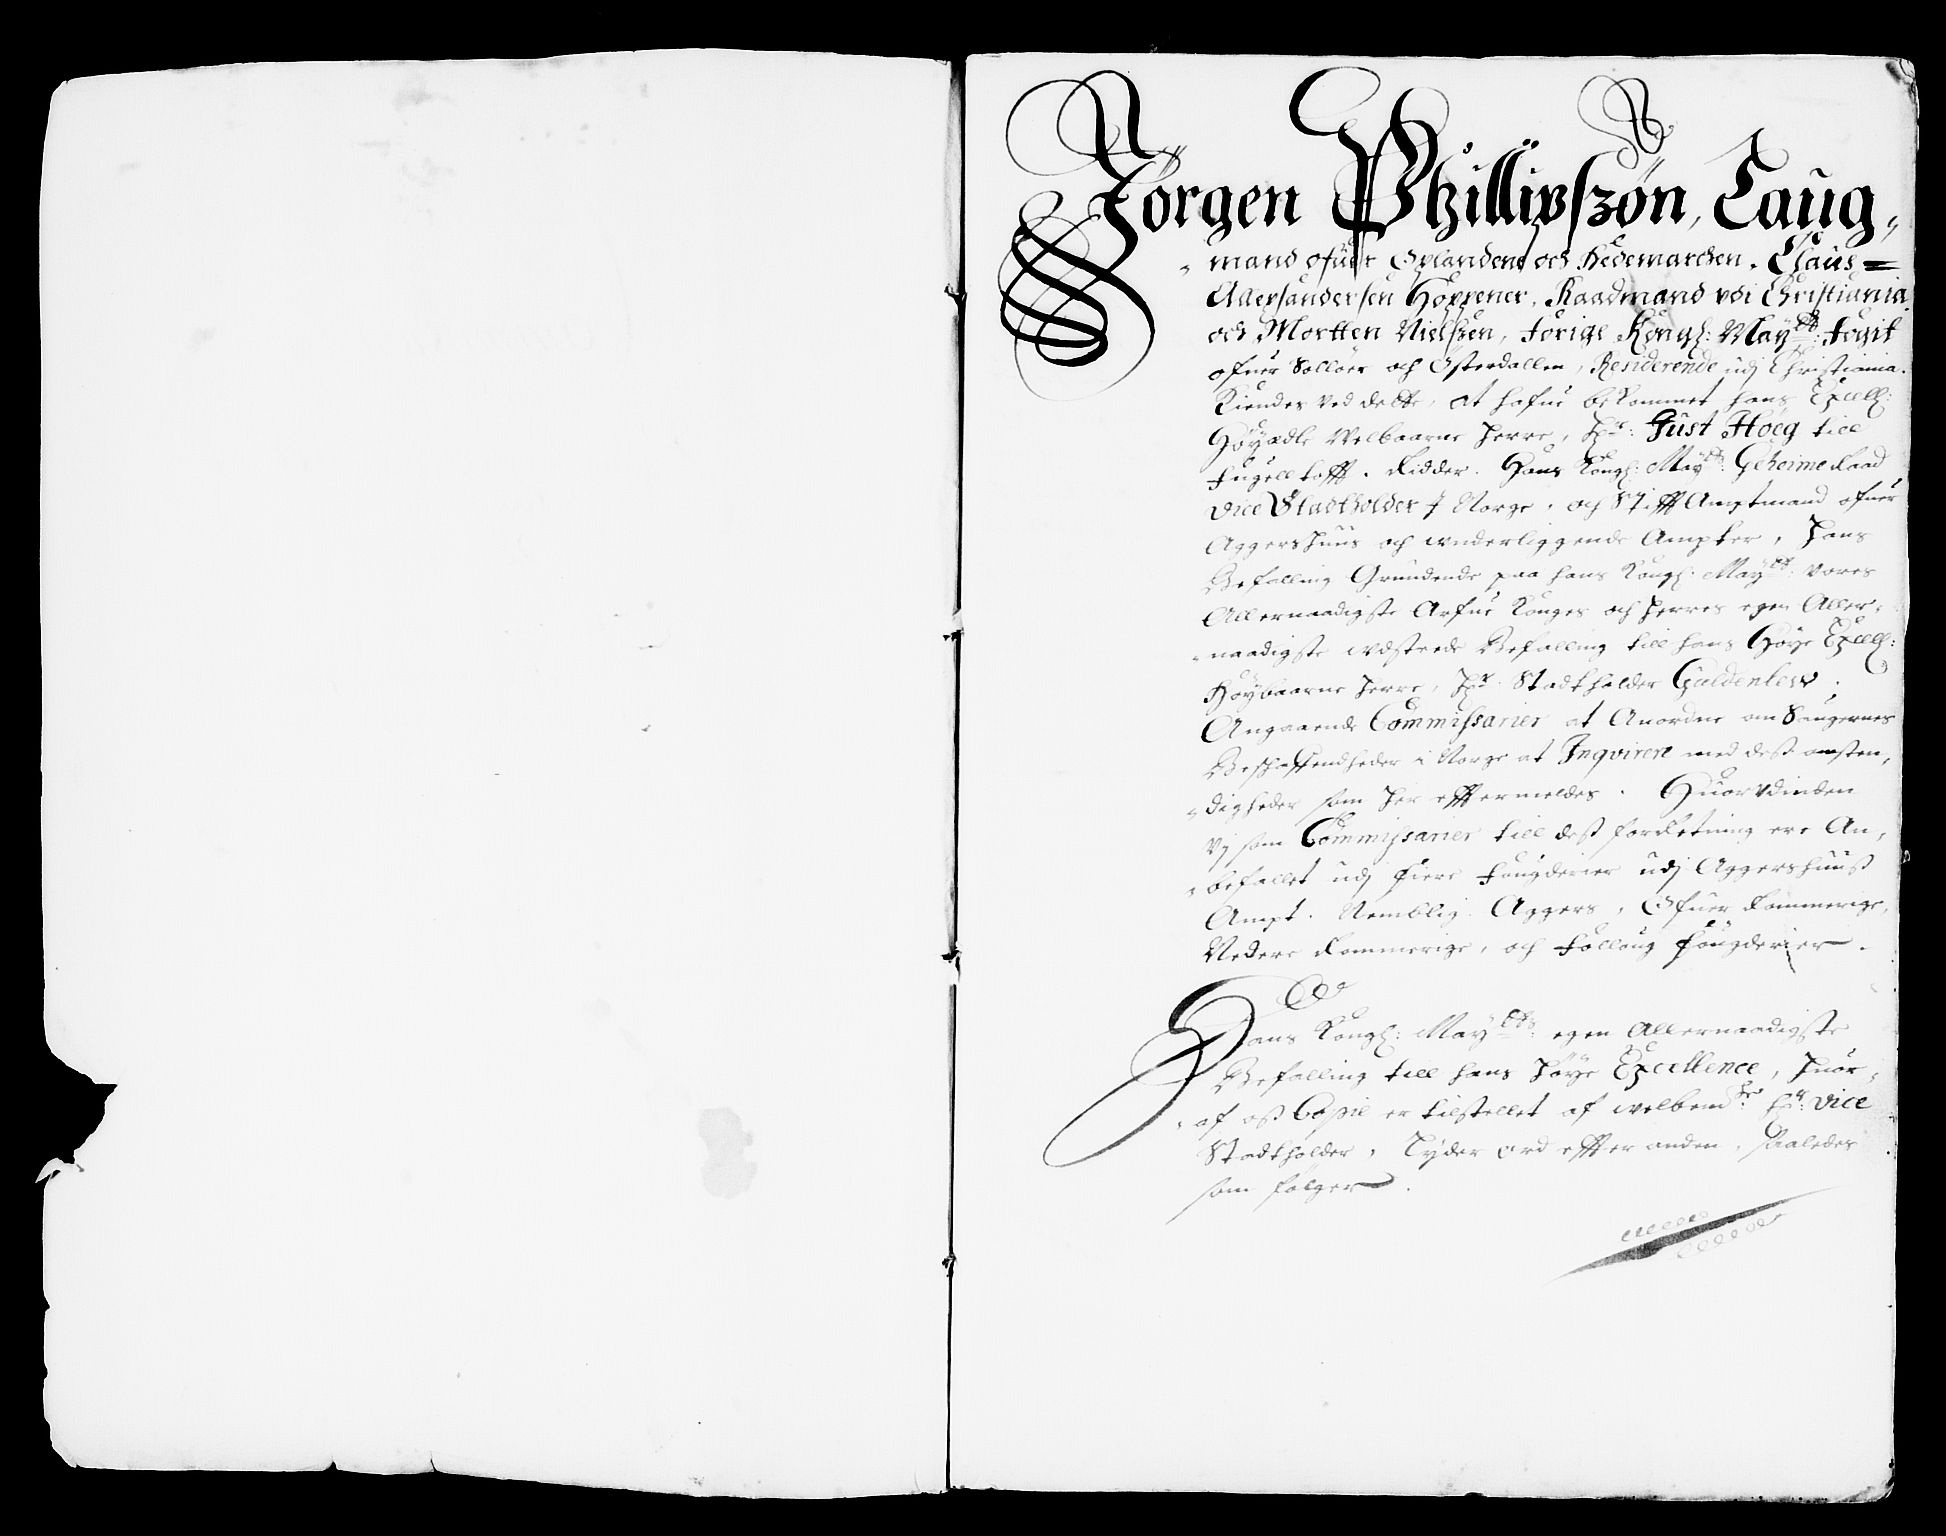 Jörgen Philliipszön, Laug„
„mand ofuer Oplanden och Hedemarchen. Claus =
Allexsandersen Höppener, Raadmand vdi Christiania.
och Mortten Nielszen, forige Kongl: Mayts: fogit
ofuer Sollöer och Österdallen, Residerende udj Christiania.
Kiendes ved dette, at hafue bekommet hans Excell:
Höyædle Welbaarne Herre, Hr: Just Höeg till
Fugelltofft. Ridder. Hans Kongl: Mayts: Geheime Raad
vice Stadtholder J Norge, och Stifft Amptmand ofuer
Aggershuus och wnderliggende Ampter, Hans
Befalling Grundende paa hans Kongl: Mayts: vores
Allernaadigste Arfue Konges och Herres egen Aller„
„naadigste wdsteede Befalling till hans Höye Excell:
Höybaarne Herre, Hr: Stadtholder Güldenlew;
Angaaende Commissarier at Anordne om Saugernes
Beschaffendheder i Norge at Inqvirere med dess omsten„
„digheder som her efftermeldes. Huorvdinden
Vj som Commissarier till dess forretning ere An„
„befallet udj fiere Fougderier udj Aggershuuss
Ampt. Nemblig. Aggers, Ofuer Rommerige,
Nedere Rommerige, och Follong fougderier.
Hans Kongl: Mayts: egen Allernaadigste
Befalling till hans Höye Excellence, huor„
„af oss Copie er tilstellet af welbemte: Hr: vice
Stadtholder, Lyder ord effter anden, saaledes
som fölger.